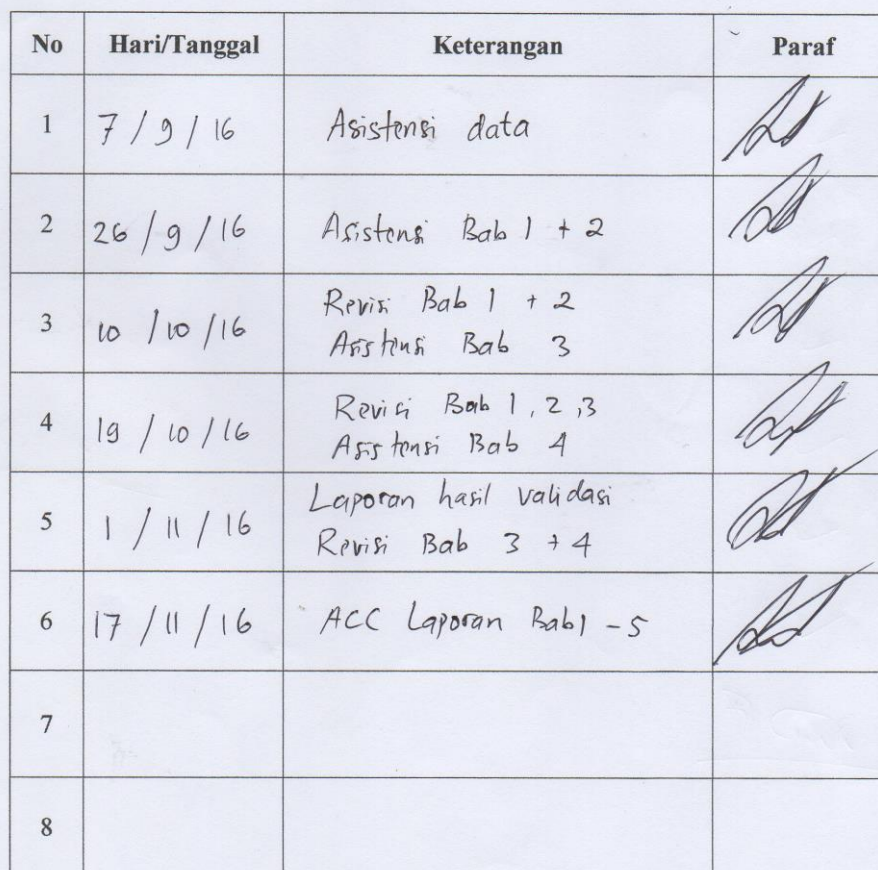 No Hari/Tanggal Keterangan Paraf
1 7/9/16 Asistensi data
2 26/9/16 Asistensi Bab 1 + 2
3 10/10/16 Revisi Bab 1 + 2
Asistensi Bab 3
4 19/10/16 Revisi Bab 1, 2, 3
Asistensi Bab 4
5 1/11/16 Laporan hasil validasi
Revisi Bab 3 + 4
6 17/11/16 ACC Laporan Bab 1 - 5
7
8